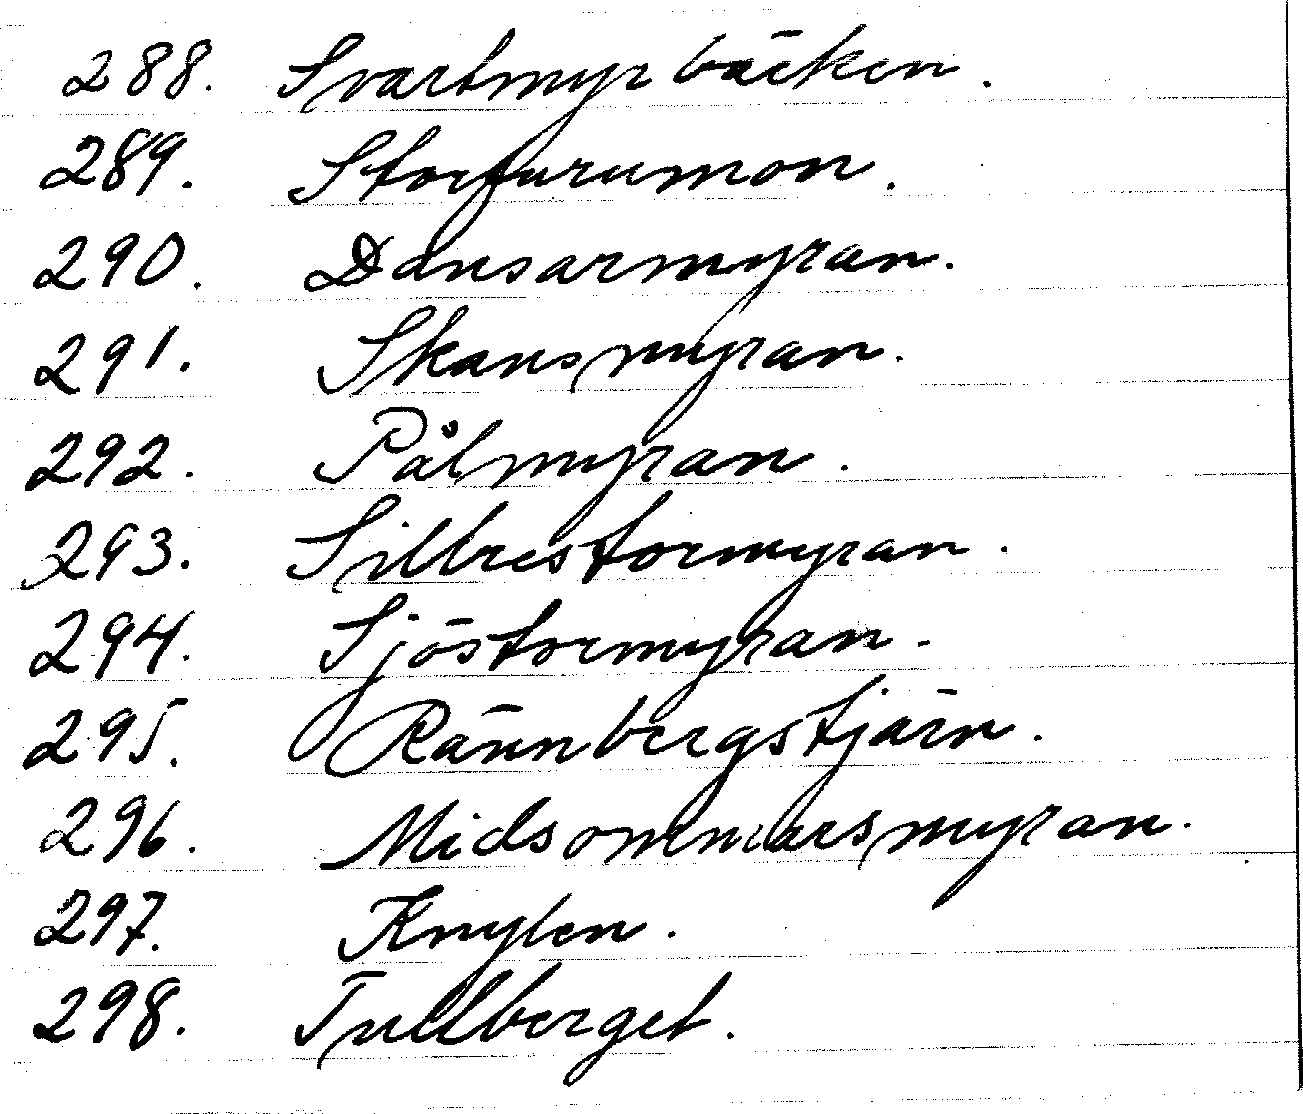 288. Svartmyrbäcken.
289. Storfurumon.
290. Dansarmyran.
291. Skansmyran.
292. Pålmyran.
293. Sillrestormyran.
294. Sjöstormyran.
295. Rännbergstjärn.
296. Midsommarsmyran.
297. Knylen.
298. Tullberget.